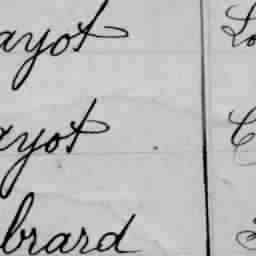 ayot
ayot
brard